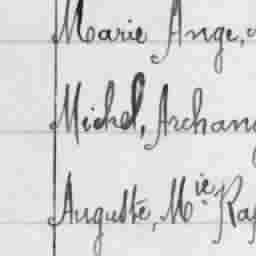 Marie Ange,
Michel, Archang
Auguste, Mie Rap